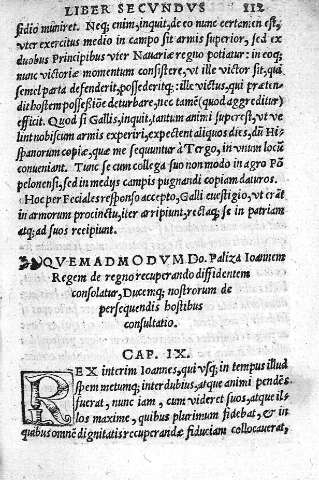 LIBER SECVNDVS 112
sidio muniret. Neq; enim, inquit, de eo nunc certamen est,
vter exercitus medio in campo sit armis superior, sed ex
duobus Principibus vter Nauariæ regno potiatur: in eoq;
nunc victoriæ momentum consistere, vt ille victor sit, qui
semel parta defenderit, possederitq;: ille victus, qui præten-
dit hostem possessiõne deturbare, nec tamẽ (quod aggreditur)
efficit. Quod si Gallis, inquit, tantum animi superest, vt ve
lint nobiscum armis experiri, expectent aliquos dies, dũ Hi-
spanorum copiæ, quæ me sequuntur à Tergo, in vnum locũ
conueniant. Tunc se cum collega suo non modo in agro Põ
pelonensi, sed in medijs campis pugnandi copiam daturos.
Hoc per Feciales responso accepto, Galli euestigio, vt erãt
in armorum procinctu, iter arripiunt, rectaq; se in patriam
atq; ad suos recipiunt.
QVEMADMODVM Do. Paliza Ioannem
Regem de regno recuperando diffidentem
consolatur, Ducemq; nostrorum de
persequendis hostibus
consultatio.
CAP. IX.
REX interim Ioannes, qui vsq; in tempus illud
spem metumq; inter dubius, atque animi pendẽs
fuerat, nunc iam, cum videret suos, atque il-
los maxime, quibus plurimum fidebat, & in
quibus omnẽ dignitatis recuperandæ fiduciam collocauerat,